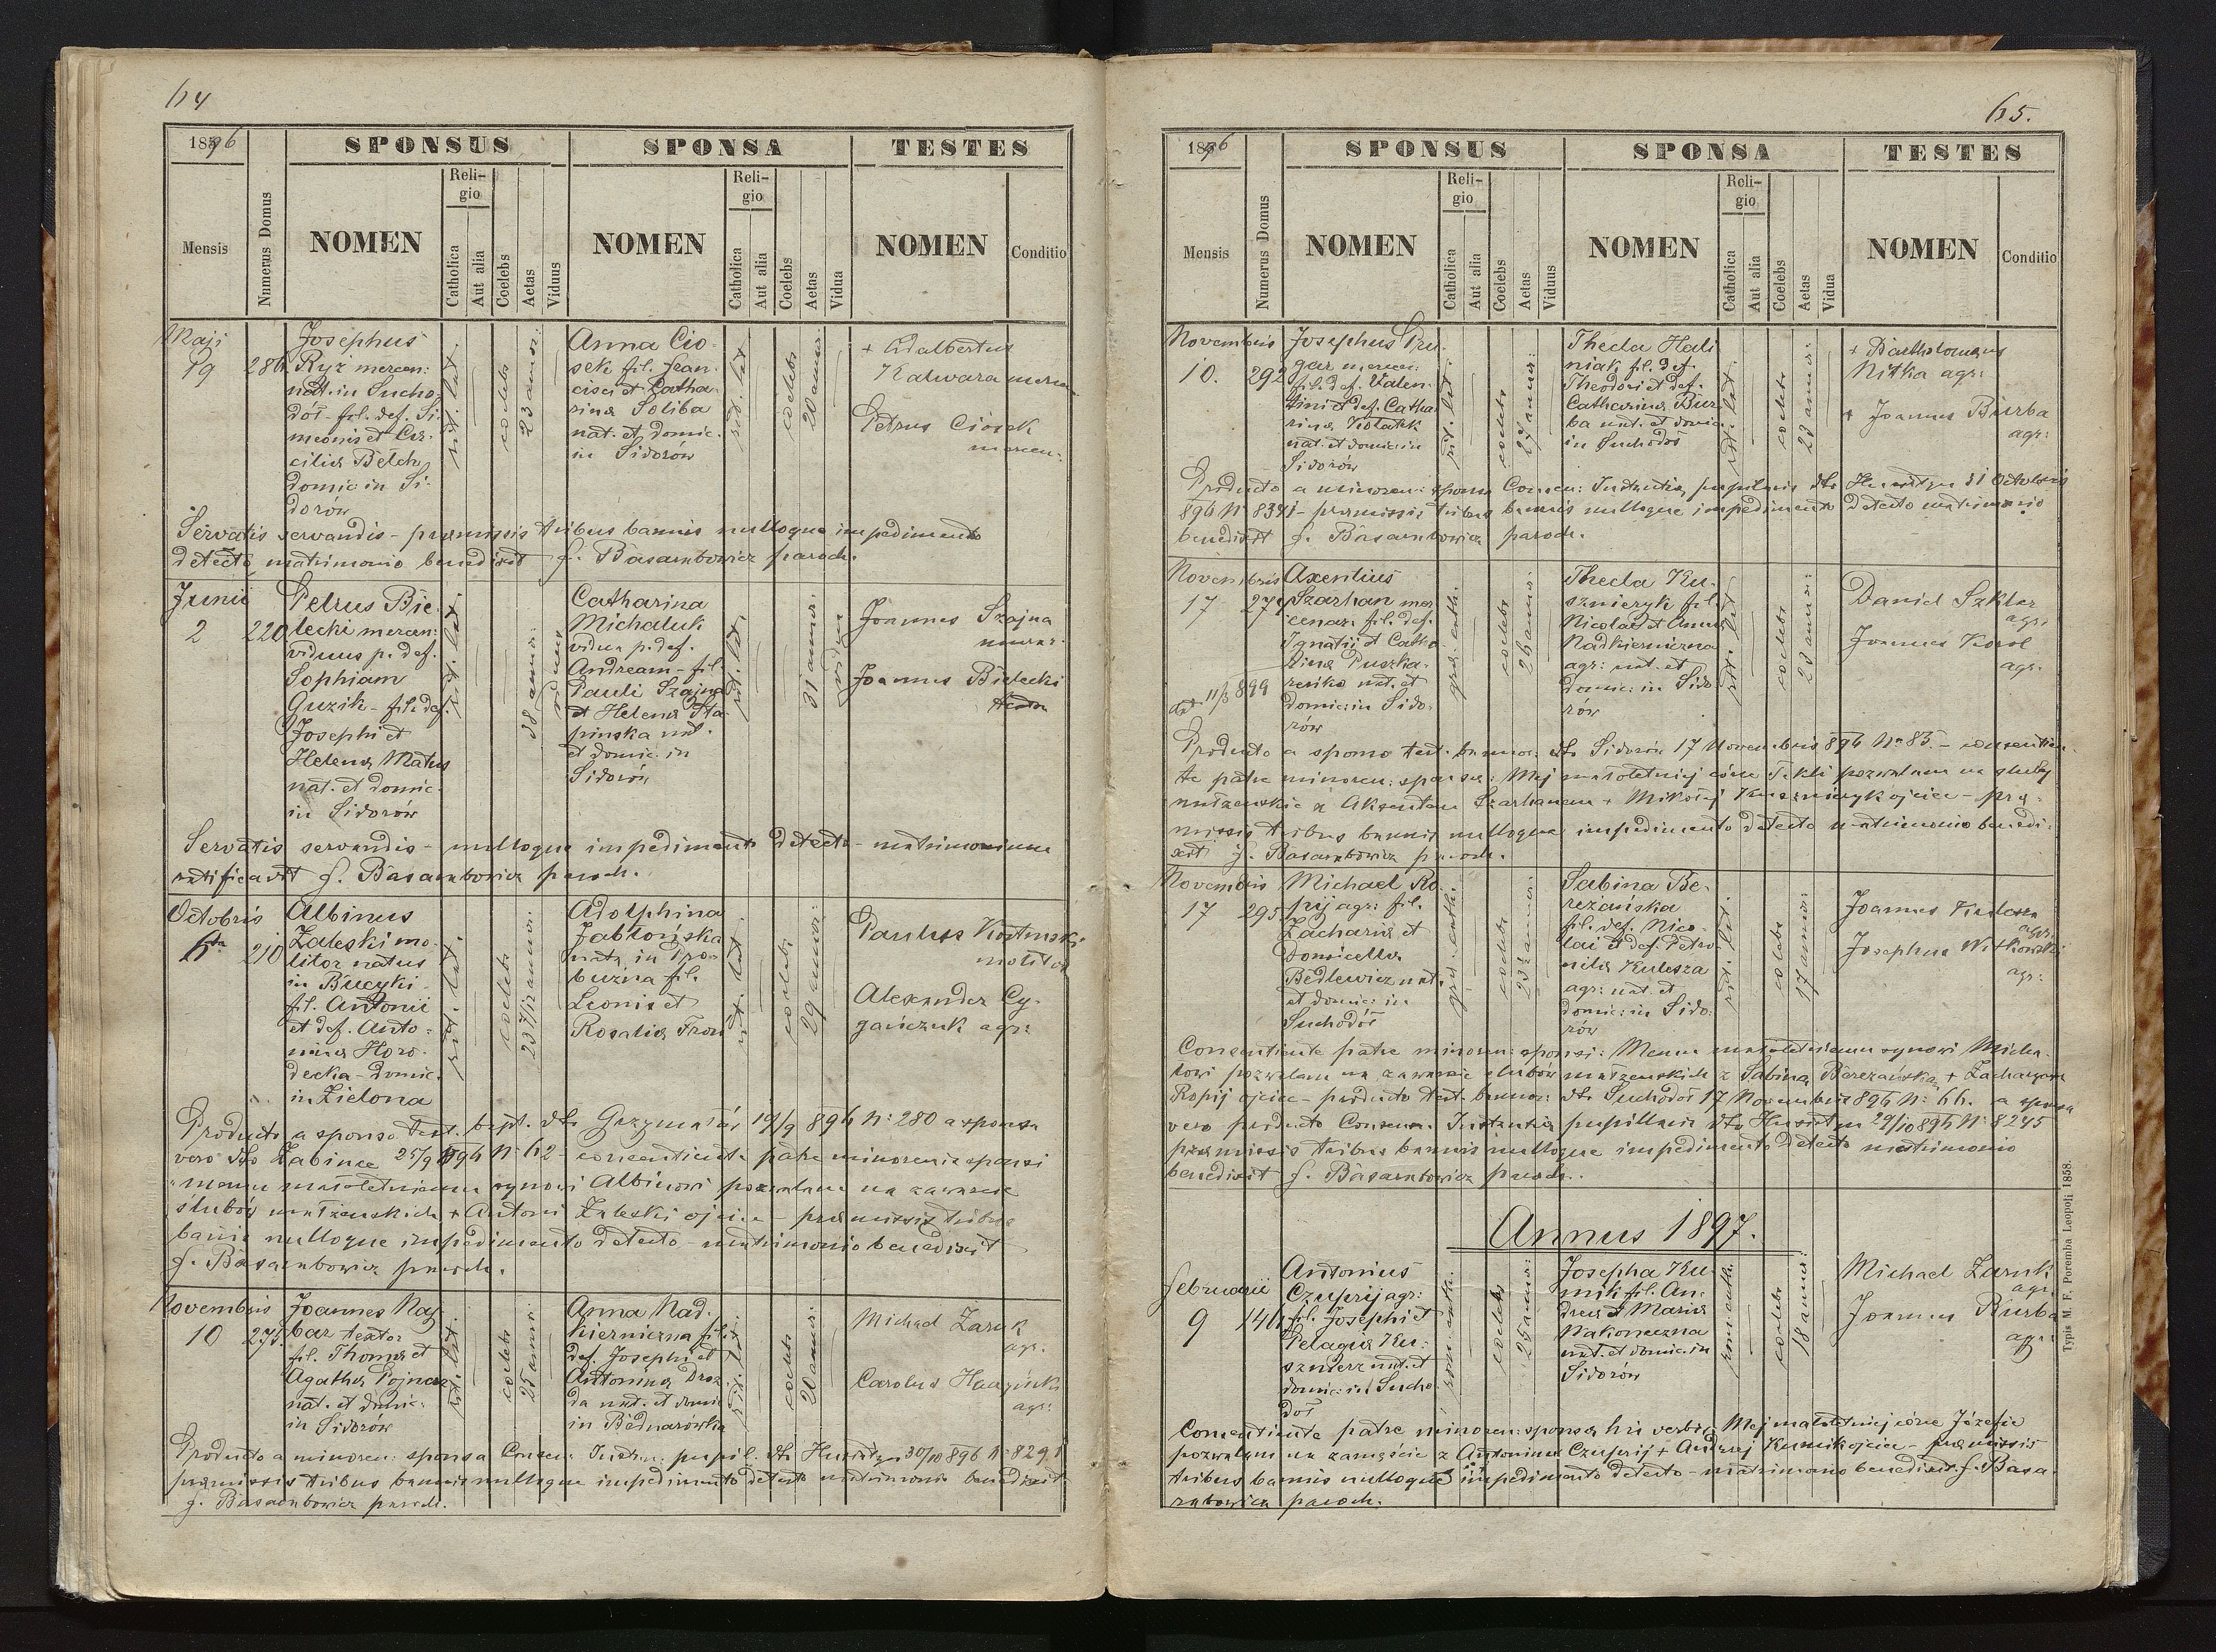 64
1896
SPONSUS
SPONSA
TESTES
Mensis
Numerus Domus
NOMEN
Reli-
gio
Catholica
Aut alia
Coelebs
Aetas
Viduus
NOMEN
Reli-
gio
Catholica
Aut alia
Coelebs
Aetas
Vidua
NOMEN
Conditio
Maji
19
286
Josephus
Ryż mercen:
nat. in Sucho-
dół - fil. def. Si-
meonis et Cæ-
cilia Belch
domic: in Si-
dorów
rit. lat.
coelebs
23 annor:
Anna Cio-
sek fil. Fran-
cisci et Catha-
rina Soliba
nat. et domic.
in Sidorów
rit. lat
coelebs
20 annor:
+ Adalbertus
Kalwara mercen
Petrus Ciosek
mercen:
Servatis servandis - præmissis tribus bannis nulloque impedimento
detecto, matrimonio benedixit J. Basarabowicz paroch.
Junii
2
220
Petrus Bie-
lecki mercen:
viduus p. def.
Sophiam
Guzik - fil. def.
Josephi et
Helena Matus
nat. et domic.
in Sidorów
rit. lat.
38 annor:
viduus
Catharina
Michaluk
vidua p. def.
Andream - fil.
Pauli Szajna
et Helena Sta-
pinska nat.
et domic. in
Sidorów
rit. lat.
31 annor:
vidua
Joannes Szajna
murar.
Joannes Bielecki
Servatis servandis - nulloque impedimento detecto - matrimonium
ratificavit J. Basarabowicz paroch.
Octobris
6ta
210
Albinus
Zaleski mo-
litor natus
in Bucyki
fil. Antonii
et def. Anto-
nina Horo-
decka - domic.
in Zielona
rit. lat.
coelebs
23 7/12 annor:
Adolphina
Jabłońska
nata in Pro-
buzna fil.
Leonis et
Rosalia Tron
rit. lat.
coelebs
29 annor:
Paulus
molitor
Alexander Cy-
gańczuk agr:
Producto a sponso test. bapt. dto Grzymałów 19/9 896 N: 280 a sponsa
vero dto Zabince 25/9 896 N: 62 - consentiente patre minorenis sponsi
"memu małoletniemu synowi Albinowi pozwalam na zawarcie
ślubów małżeńskich + Antoni Zaleski ojciec - præmissis tribus
bannis nulloque impedimento detecto - matrimonio benedixit
J. Basarabowicz paroch.
Novembris
10
275.
Joannes Naj-
bar textor
fil. Thoma et
Agatha Pojnar
nat. et domic:
in Sidorów
rit. lat.
coelebs
25 annor:
Anna Nad-
kierniczna fil.
def. Josephi et
Antonina Droz-
da nat. et domic
in Bednarówka
rit. lat.
coelebs
20 annor:
Michael Zaruk
agr.
Carolus
agr:
Producto a minoren: sponsa Consen: Instan: pupil. dto Husiatyn 30/10 896 N: 8291
præmissis tribus bannis nulloque impedimento detecto matrimonio benedixit
J. Basarabowicz paroch.
65.
1896
SPONSUS
SPONSA
TESTES
Mensis
Numerus Domus
NOMEN
Reli-
gio
Catholica
Aut alia
Coelebs
Aetas
Viduus
NOMEN
Reli-
gio
Catholica
Aut alia
Coelebs
Aetas
Vidua
NOMEN
Conditio
Novembris
10.
292
Josephus Pru-
gar mercen:
fil. def. Valen-
tini et def. Catha-
rina Kolarek
nat. et domic: in
Sidorów
rit. lat.
coelebs
27 annor:
Thecla Hali-
niak fil. def.
Theodori et def.
Catharina Bur-
ba nat. et domic
in Suchodół
rit. lat.
coelebs
23 annor:
+ Bartholomæus
Nitka agr:
+ Joannes Burba
agr:
Producto a minoren: sponsa Consen: Instantia pupilaris dto Husiatyn 31 Octobris
896 N: 8341 - præmissis tribus bannis nulloque impedimento detecto matrimonio
benedixit J. Basarabowicz paroch.
Novembris
17
279
11/3 899
Axentius
Szarhan mer-
cenar. fil. def.
Ignatii et Catha-
rina Puszka-
resika nat. et
domic: in Sido-
rów
græ. cath.
coelebs
26 annor:
Thecla Ku-
sznieryk fil.
Nicolai et Anna
Nadkierniczna
agr: nat. et
domic: in Sido-
rów
rit. lat
coelebs
23 annor:
Daniel Szklar
agr:
Joannes Korol
agr.
Producto a sponso test. bannor: dto Sidorów 17 Novembris 896 N: 85. - consentien-
te patre minoren: sponsa: Mej małoletniej córce Tekli pozwalam na śluby
małżeńskie z Aksentem Szarhanem + Mikołaj Kusznieryk ojciec - præ-
missis tribus bannis nulloque impedimento detecto matrimonio benedi-
xit J. Basarabowicz paroch.
Novembris
17
295
Michael Ro-
pij agr: fil.
Zacharia et
Domicella
Bedlewicz nat.
et domic: in
Suchodół
græ. cath.
coelebs
Sabina Be-
reżańska
fil. def. Nico-
lai et def. Petro-
nila Kulesza
agr: nat. et
domic: in Sido-
rów
rit. lat.
coelebs
17 annor:
Joannes Kulesza
agr:
Josephus Witkowski
agr:
Consentiente patre minoren: sponsi: Memu małoletniemu synowi Micha-
łowi pozwalam na zawarcie ślubów małżeńskich z Sabiną Bereżańską + Zacharyasz
Ropij ojciec - producto test. bannor: dto Suchodół 17 Novembris 896 N: 66. a sponsa
vero producto Consens. Instantia pupillaris dto Husiatyn 29/10 896 N: 8245
præmissis tribus bannis nulloque impedimento detecto matrimonio
benedixit J. Basarabowicz paroch.
Annus 1897.
Februarii
9
146
Antonius
Czuprij agr:
fil. Josephi et
Pelagia Ku-
sznierz nat. et
domic: in Sucho-
dół
rom. cath.
coelebs
25 annor:
Josepha Ku-
mik fil. An-
drea et Maria
Nakoneczna
nat. et domic. in
Sidorów
rom. cath.
coelebs
18 annor:
Michael Zaruk
agr:
Joannes Burba
agr:
Consentiente patre minoren: sponsa his verbis: Mej małoletniej córce Józefie
pozwalam na zamęście z Antonim Czuprij + Andrzej Kumik ojciec - præmissis
tribus bannis nulloque impedimento detecto - matrimonio benedixit J. Basa-
rabowicz paroch.
Typis M. F. Poremba Leopoli 1888.